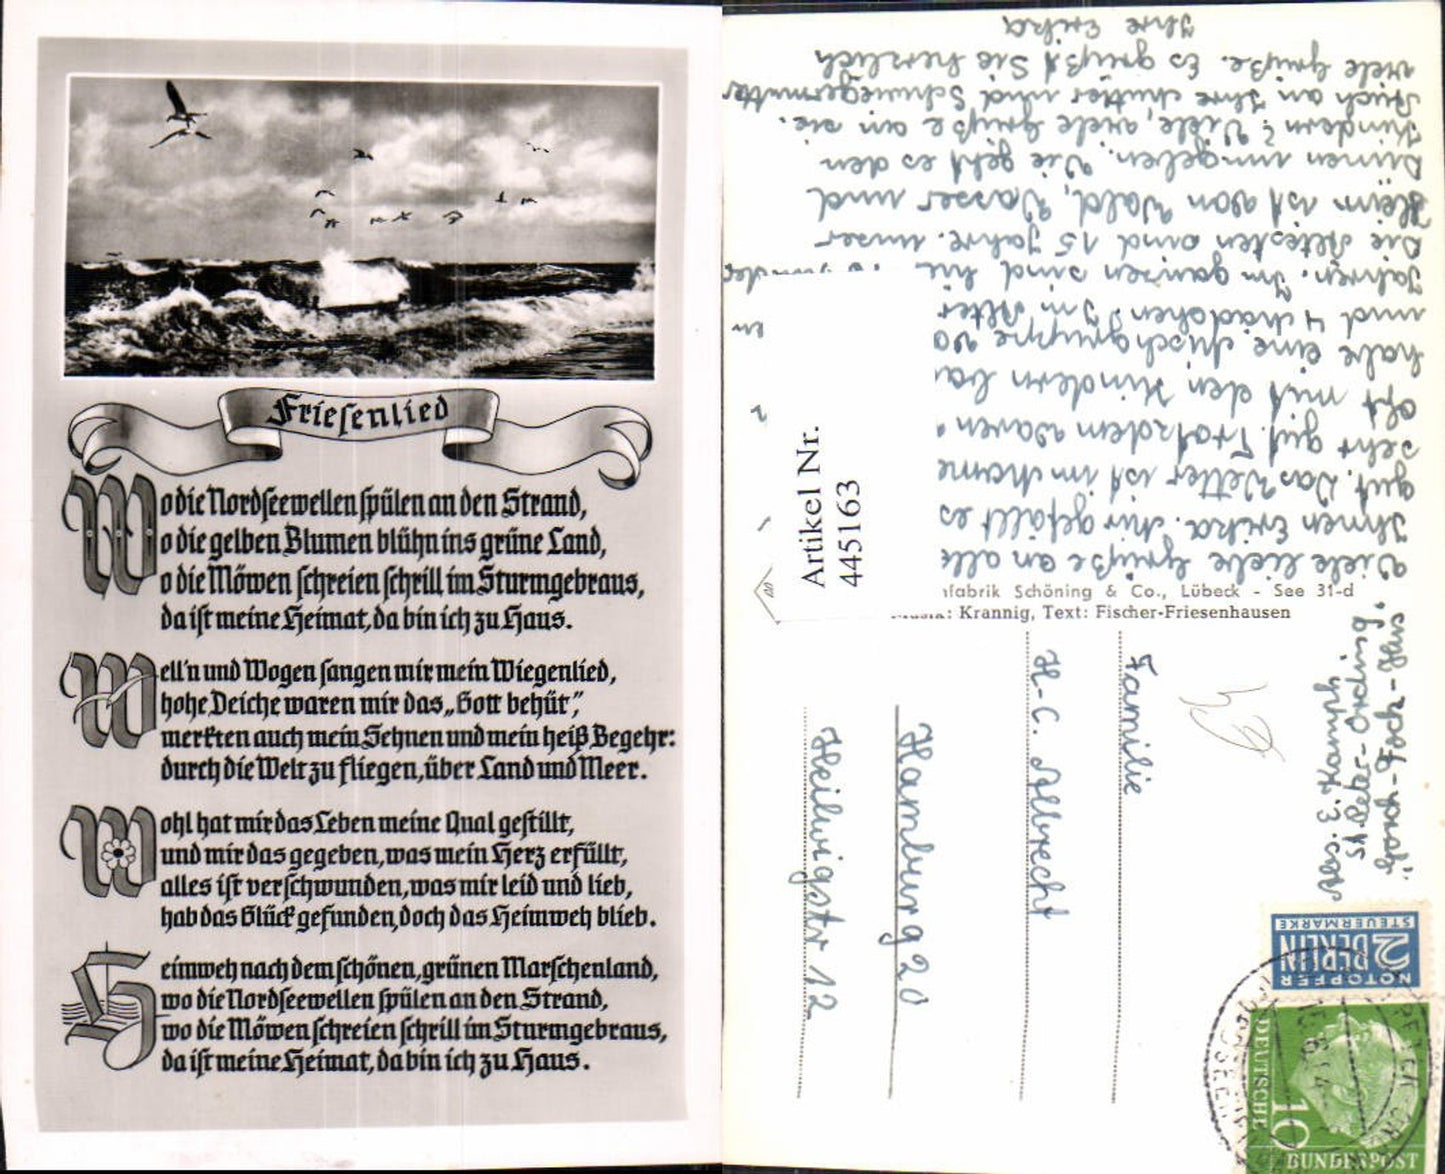 Friesenlied
Wo die Nordseewellen spülen an den Strand,
Wo die gelben Blumen blühn ins grüne Land,
Wo die Möwen schreien schrill im Sturmgebraus,
da ist meine Heimat, da bin ich zu Haus.
Well'n und Wogen sangen mir mein Wiegenlied,
hohe Deiche waren mir das „Gott behüt",
merkten auch mein Sehnen und mein heiß Begehr:
durch die Welt zu fliegen, über Land und Meer.
Wohl hat mir das Leben meine Qual gestillt,
und mir das gegeben, was mein Herz erfüllt,
alles ist verschwunden, was mir leid und lieb,
hab das Glück gefunden, doch das Heimweh blieb.
Heimweh nach dem schönen, grünen Marschenland,
wo die Nordseewellen spülen an den Strand,
wo die Möwen schreien schrill im Sturmgebraus,
da ist meine Heimat, da bin ich zu Haus.
Viele liebe Grüße an alle
Ihnen Erika. Mir gefällt es
gut. Das Wetter ist im
sehr gut. Trotzdem waren
oft mit den Kindern
habe eine Mischgruppe
und 4 Mädchen, Im Alter
Jahren. Im ganzen sind hie
Die Ältesten sind 15 Jahre. Unser
Heim ist von Wald, Wasser und
Dünen umgeben. Wie geht es den
Kindern? Viele, viele Grüße an sie.
Auch an Ihre Mutter und Schwiegermutter
viele Grüße. Es grüßt Sie herzlich
Ihre Erika
Artikel Nr.
445163
fabrik Schöning & Co., Lübeck - See 31-d
Musik: Krannig, Text: Fischer-Friesenhausen
Abs. E. Kamph
St. Peter-Ording
Gorch-Fock-Haus
Familie
H-C. Albrecht
Hamburg 20
Heilwigstr 12
NOTOPFER
2 BERLIN
STEUERMARKE
DEUTSCHE
10
BUNDESPOST